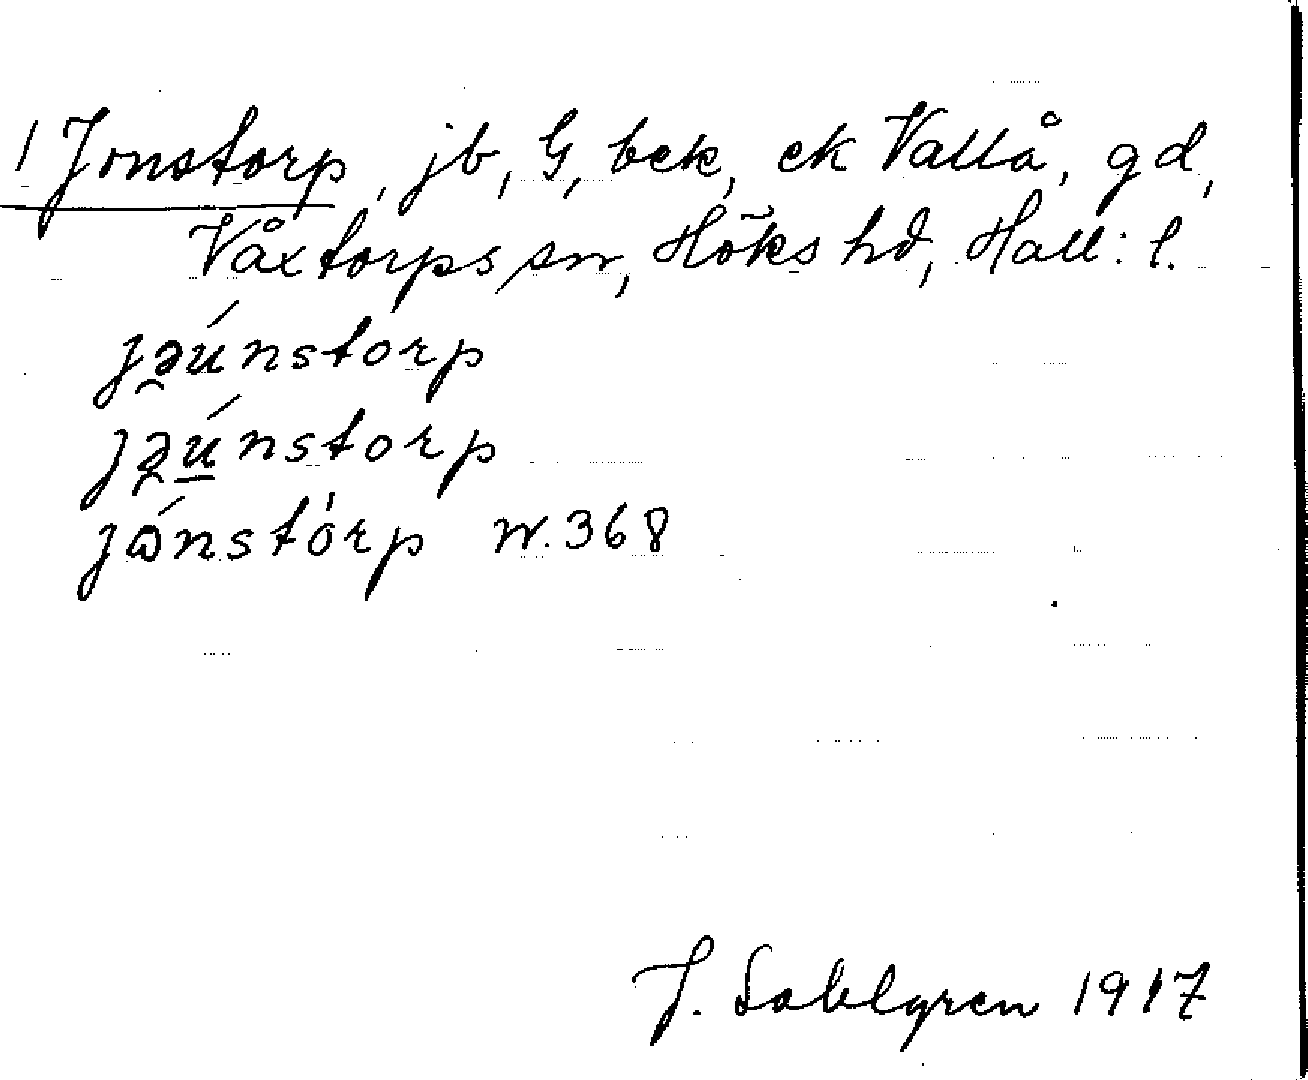 1 Jonstorp, jb, G, bek, ek Vallå, gd,
Våxtorps sn, Höks hd, Hall: l.
jə̯únstorp
jə̯ú̲nstorp
jónstòrp nr. 368
J. Sahlgren 1917